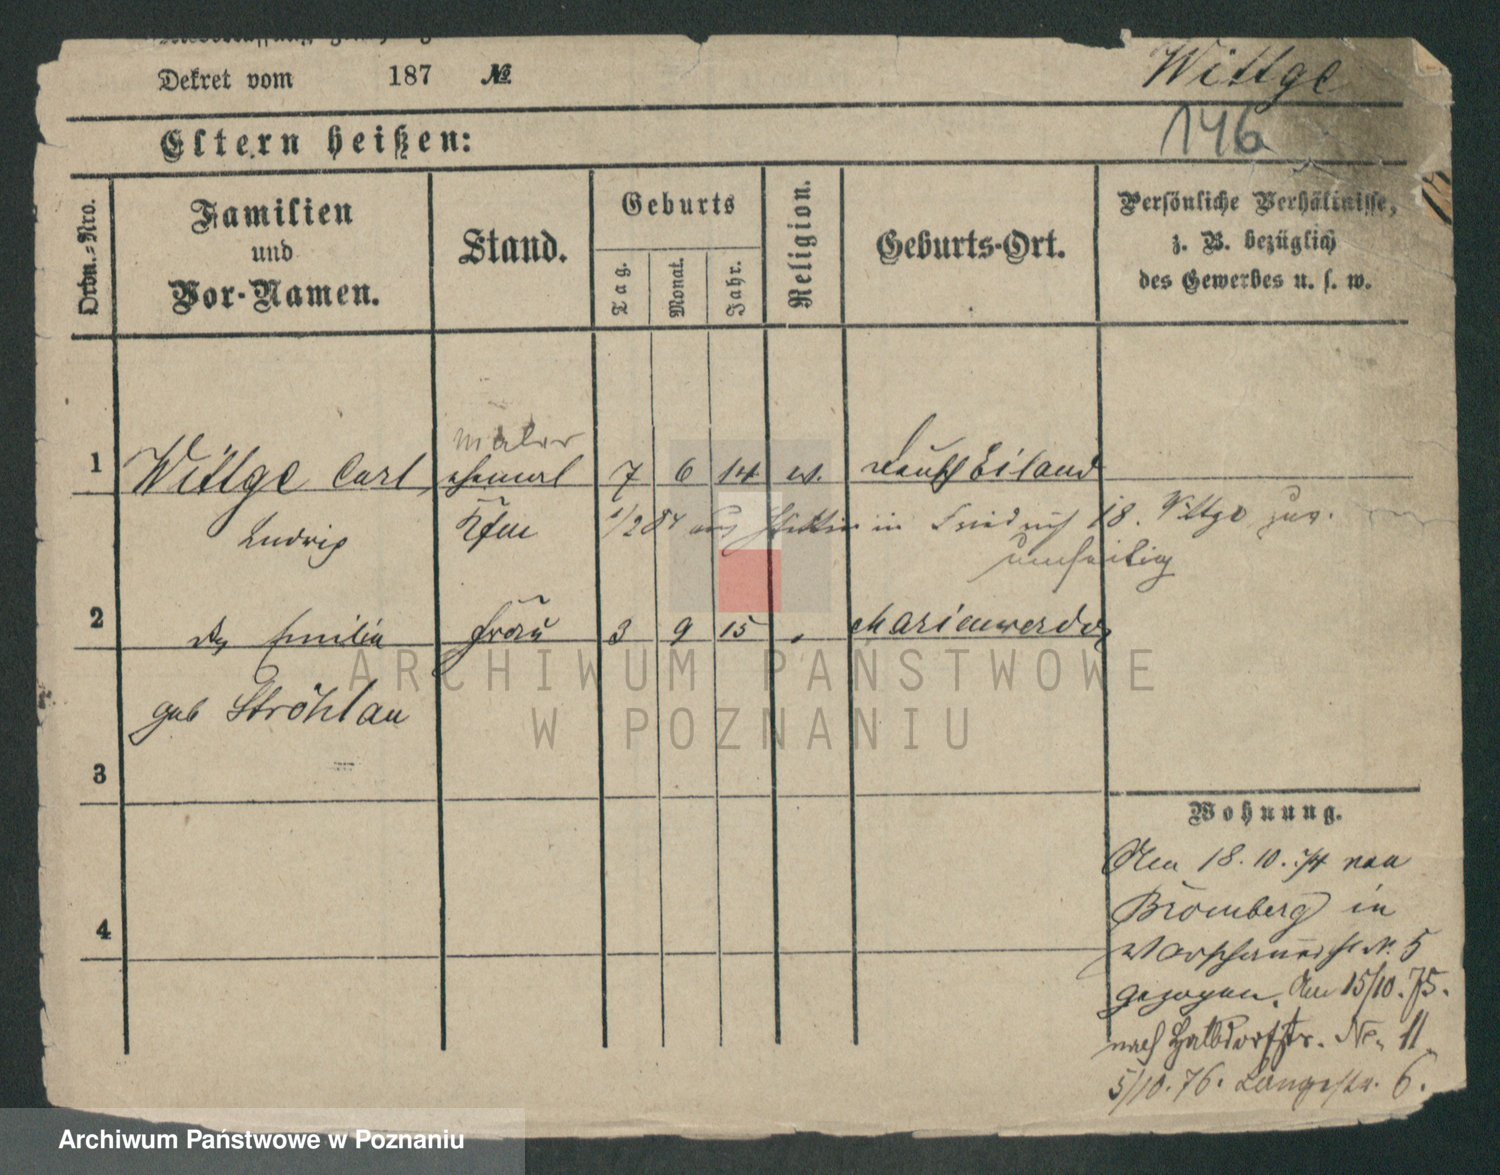 Dekret vom 187 №
Wittge
146
Eltern heißen:
Ordn.-Nro.
Familien
und
Vor-Namen.
Stand.
Geburts
Tag.
Monat.
Jahr.
Religion.
Geburts-Ort.
Persönliche Verhältnisse,
z. B. bezüglich
des Gewerbes u. s. w.
Maler
1 Wittge Carl ehemal 7 6 14 ev. Deutsch Eiland
Ludwig Kfm 1/2 84 aus Stettin in Friedrich 18. Wittge zur.
2 Emilia Frau 3 9 15 " Marienwerder
geb Ströhlau
3
4
Wohnung.
Am 18.10.74 von
Bromberg in
Warschauerstr N. 5
gezogen. Am 15/10.75.
nach Halbdorfstr. No. 11.
5/10.76. Langestr. 6.
ARCHIWUM PAŃSTWOWE
W POZNANIU
Archiwum Państwowe w Poznaniu